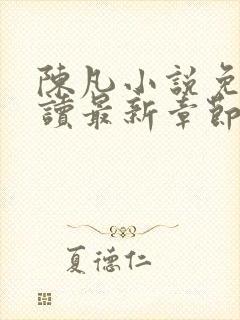 陳凡小說免
讀最新章節
夏德仁